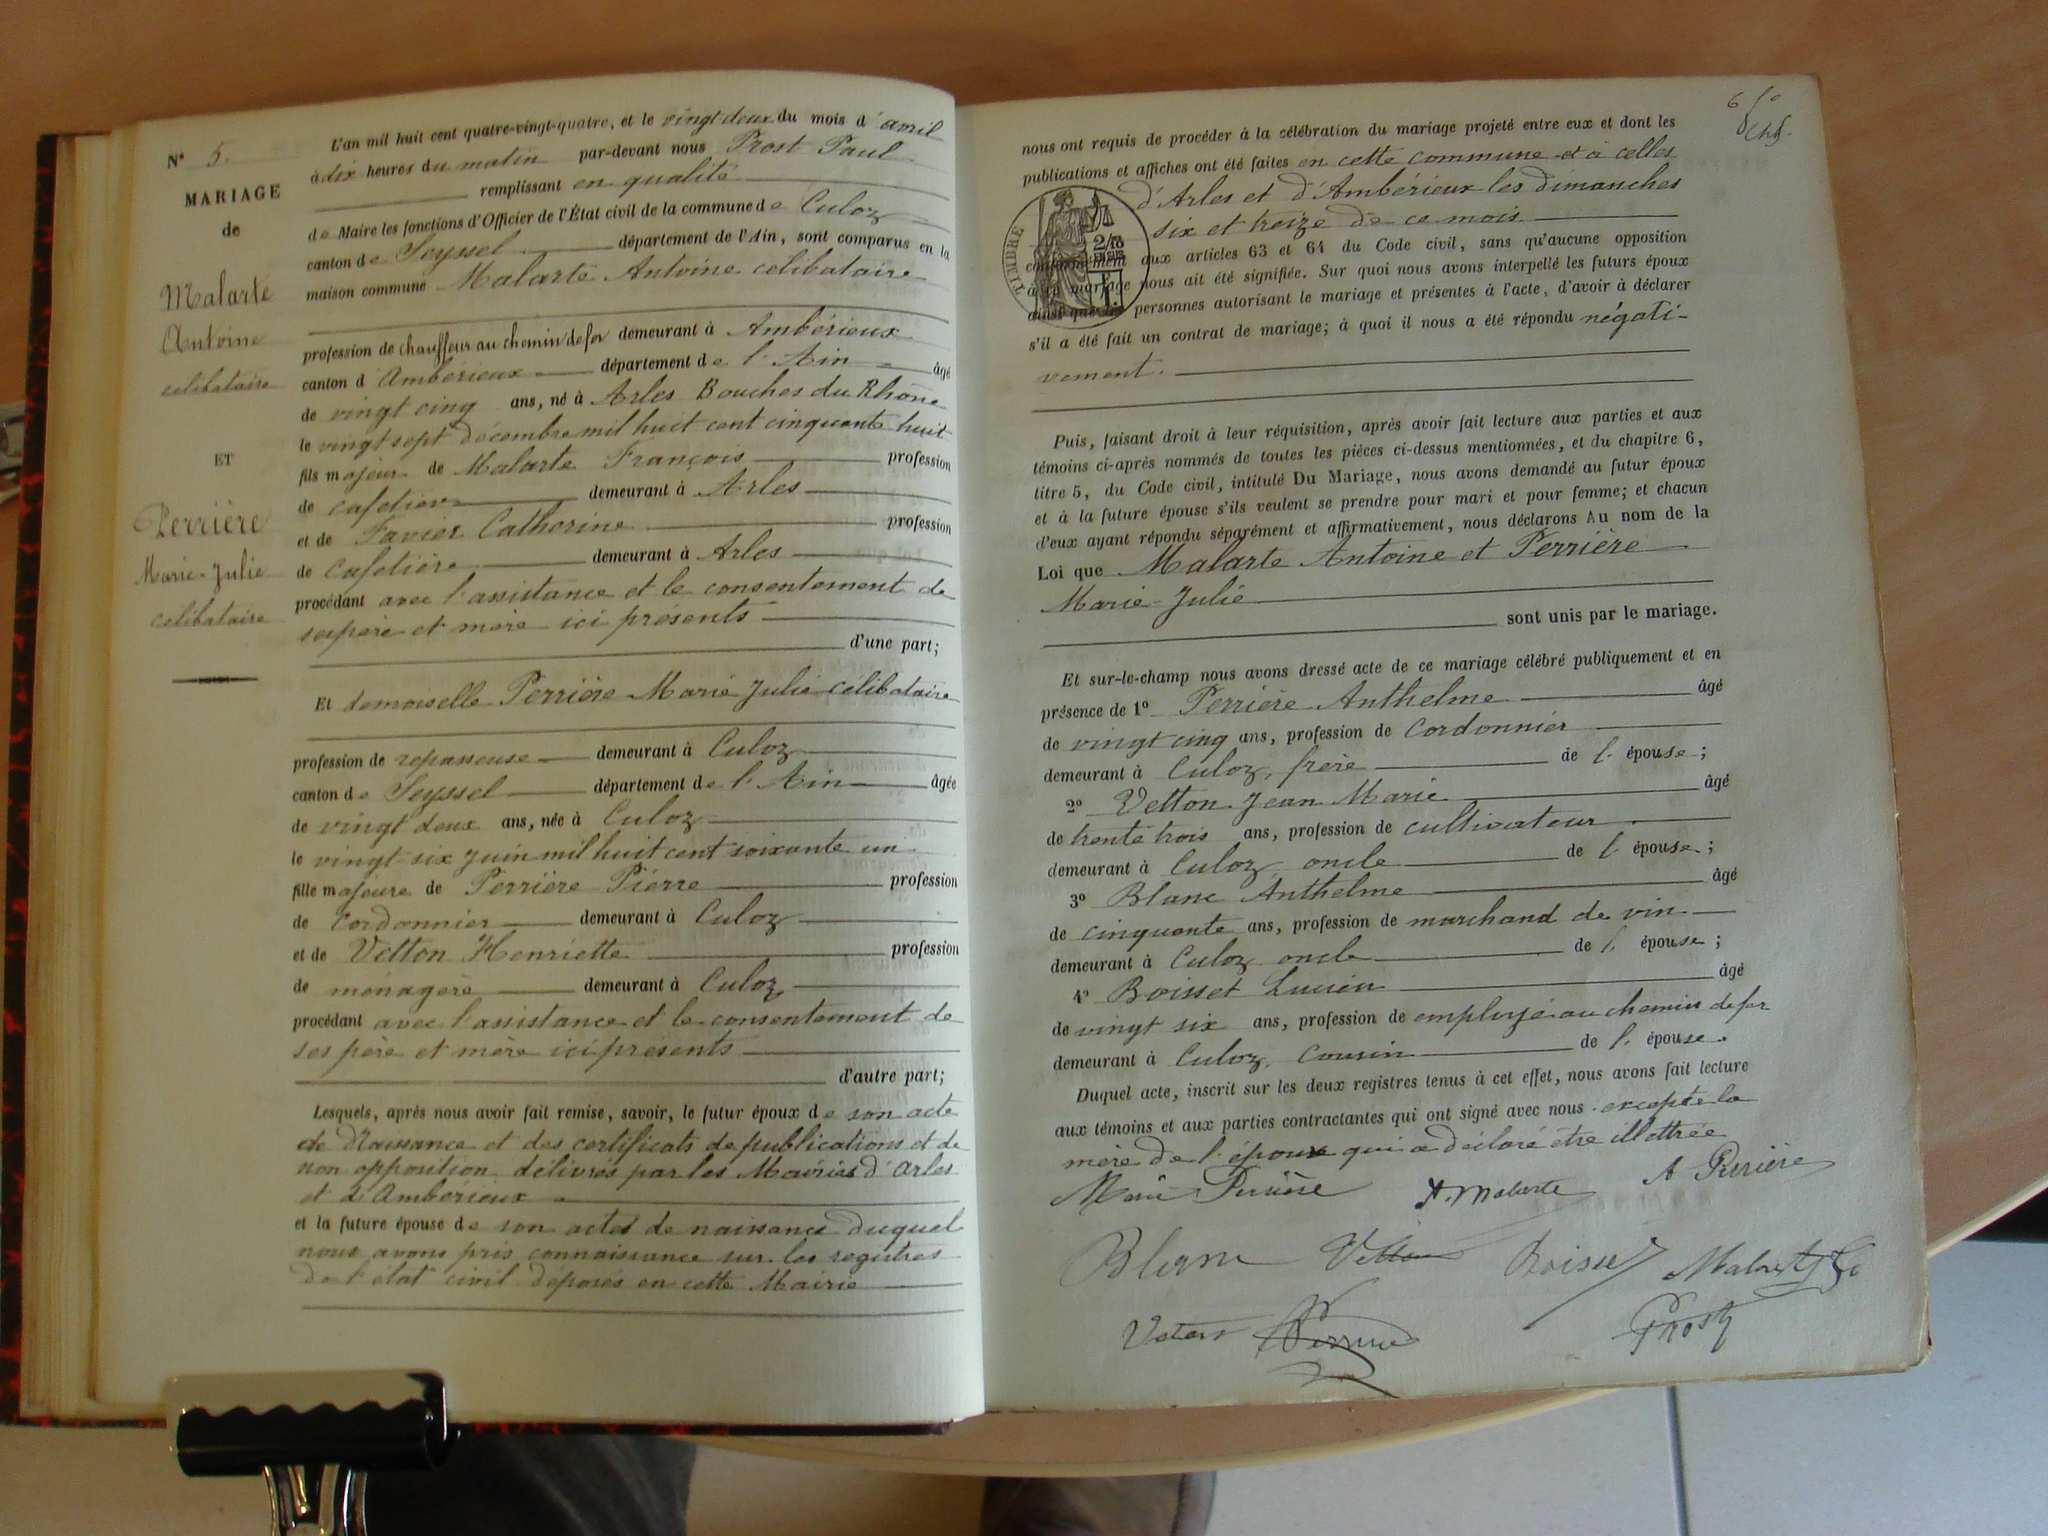 N° 5.
MARIAGE
de
Malarte
Antoine
célibataire
ET
Perrière
Marie-Julie
célibataire
L'an mil huit cent quatre-vingt-quatre, et le vingt-deux du mois d'avril
à dix heures du matin par-devant nous Prost Paul
remplissant en qualité
de Maire les fonctions d'Officier de l'État civil de la commune de Culoz
canton de Seyssel département de l'Ain, sont comparus en la
maison commune Malarte Antoine célibataire
profession de chauffeur au chemin de fer demeurant à Ambérieux
canton d'Ambérieux département de l'Ain âgé
de vingt cinq ans, né à Arles Bouches du Rhône
le vingt sept décembre mil huit cent cinquante huit
fils majeur de Malarte François profession
de cafetier demeurant à Arles
et de Favier Catherine profession
de cafetière demeurant à Arles
procédant avec l'assistance et le consentement de
ses père et mère ici présents
d'une part;
Et demoiselle Perrière Marie Julie célibataire
profession de repasseuse demeurant à Culoz
canton de Seyssel département de l'Ain âgée
de vingt deux ans, née à Culoz
le vingt-six juin mil huit cent soixante un
fille majeure de Perrière Pierre profession
de cordonnier demeurant à Culoz
et de Vetton Henriette profession
de ménagère demeurant à Culoz
procédant avec l'assistance et le consentement de
ses père et mère ici présents
d'autre part;
Lesquels, après nous avoir fait remise, savoir, le futur époux de son acte
de Naissance et des certificats de publications et de
non opposition délivrés par les Mairies d'Arles
et d'Ambérieux
et la future épouse de son actes de naissance duquel
nous avons pris connaissance sur les registres
de l'état civil déposés en cette Mairie
6
nous ont requis de procéder à la célébration du mariage projeté entre eux et dont les
publications et affiches ont été faites en cette commune et à celles
d'Arles et d'Ambérieux les dimanches
six et treize de ce mois
TIMBRE
conformément aux articles 63 et 64 du Code civil, sans qu'aucune opposition
à ce mariage nous ait été signifiée. Sur quoi nous avons interpellé les futurs époux
ainsi que les personnes autorisant le mariage et présentes à l'acte, d'avoir à déclarer
s'il a été fait un contrat de mariage; à quoi il nous a été répondu négati-
vement.
Puis, faisant droit à leur réquisition, après avoir fait lecture aux parties et aux
témoins ci-après nommés de toutes les pièces ci-dessus mentionnées, et du chapitre 6,
titre 5, du Code civil, intitulé Du Mariage, nous avons demandé au futur époux
et à la future épouse s'ils veulent se prendre pour mari et pour femme; et chacun
d'eux ayant répondu séparément et affirmativement, nous déclarons Au nom de la
Loi que Malarte Antoine et Perrière
Marie-Julie
sont unis par le mariage.
Et sur-le-champ nous avons dressé acte de ce mariage célébré publiquement et en
présence de 1° Perrière Anthelme âgé
de vingt cinq ans, profession de cordonnier
demeurant à Culoz, frère de l'épouse;
2° Vetton Jean Marie âgé
de trente trois ans, profession de cultivateur
demeurant à Culoz oncle de l'épouse;
3° Blanc Anthelme âgé
de cinquante ans, profession de marchand de vin
demeurant à Culoz oncle de l'épouse;
4° Boisset Lucien âgé
de vingt six ans, profession de employé au chemin de fer
demeurant à Culoz, cousin de l'épouse.
Duquel acte, inscrit sur les deux registres tenus à cet effet, nous avons fait lecture
aux témoins et aux parties contractantes qui ont signé avec nous excepté la
mère de l'époux qui a déclaré être illettrée
Marie Perrière A. Malarte A Perrière
Blanc Vetton Boisset Malarte
Vetton Perrière Prost